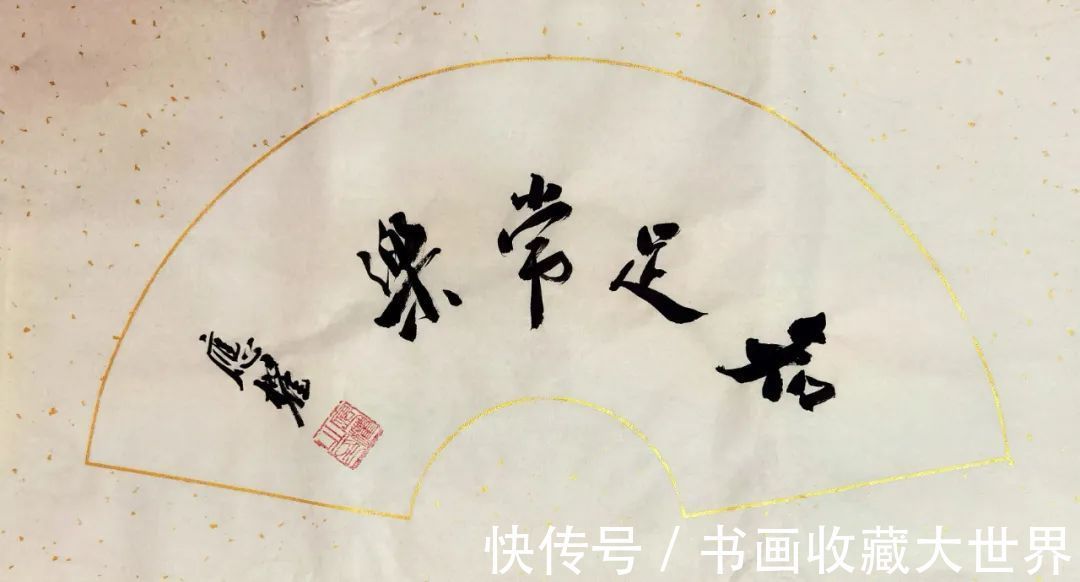 知足常樂
應
快传号 / 书画收藏大世界